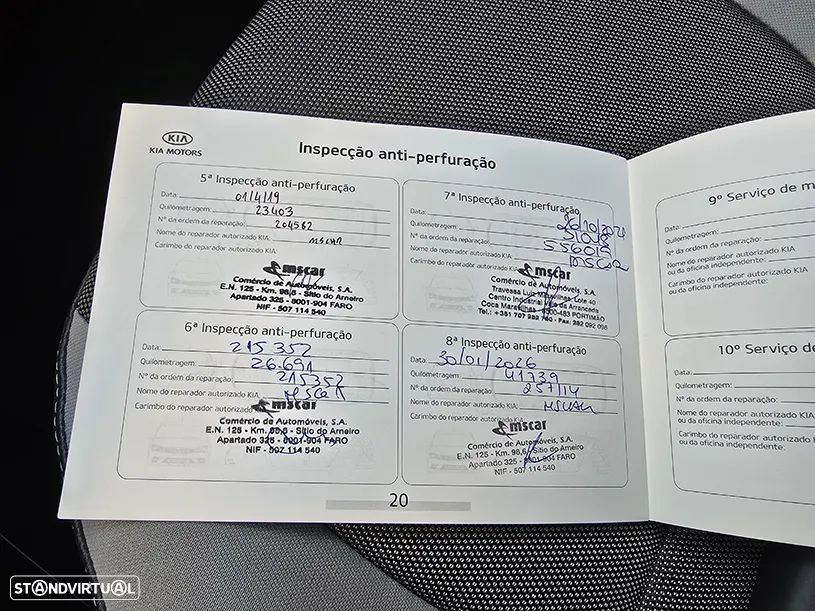 KIA
KIA MOTORS
Inspecção anti-perfuração
5ª Inspecção anti-perfuração
Data: 01/4/19
Quilometragem: 23403
Nº da ordem da reparação: 204582
Nome do reparador autorizado KIA: MSCAR
Carimbo do reparador autorizado KIA:
mscar
Comércio de Automóveis, S.A.
E.N. 125 - Km. 98,6 - Sítio do Arneiro
Apartado 325 - 8001-904 FARO
NIF - 507 114 540
6ª Inspecção anti-perfuração
Data: 215352
Quilometragem: 26.691
Nº da ordem da reparação: 215352
Nome do reparador autorizado KIA: MSCAR
Carimbo do reparador autorizado KIA:
mscar
Comércio de Automóveis, S.A.
E.N. 125 - Km. 98,6 - Sítio do Arneiro
Apartado 325 - 8001-904 FARO
NIF - 507 114 540
7ª Inspecção anti-perfuração
Data:
Quilometragem:
Nº da ordem da reparação: 556015
Nome do reparador autorizado KIA: MSCAR
Carimbo do reparador autorizado KIA:
mscar
Comércio de Automóveis, S.A.
Travessa Luís Maravilhas, Lote 40
Centro Industrial Vila da Arrancada
Coca Maravilhas - 8500-483 PORTIMÃO
Tel.: +351 707 282 760 - Fax: 282 092 098
8ª Inspecção anti-perfuração
Data: 30/01/2026
Quilometragem: 41339
Nº da ordem da reparação: 257114
Nome do reparador autorizado KIA: MSCAR
Carimbo do reparador autorizado KIA:
mscar
Comércio de Automóveis, S.A.
E.N. 125 - Km. 98,6 - Sítio do Arneiro
Apartado 325 - 8001-904 FARO
NIF - 507 114 540
20
9º Serviço de m
Data:
Quilometragem:
Nº da ordem da reparação:
Nome do reparador autorizado KIA
ou da oficina independente:
Carimbo do reparador autorizado KIA
ou da oficina independente:
10º Serviço de
Data:
Quilometragem:
Nº da ordem da reparação:
Nome do reparador autorizado KIA
ou da oficina independente:
Carimbo do reparador autorizado K
ou da oficina independente:
STANDVIRTUAL